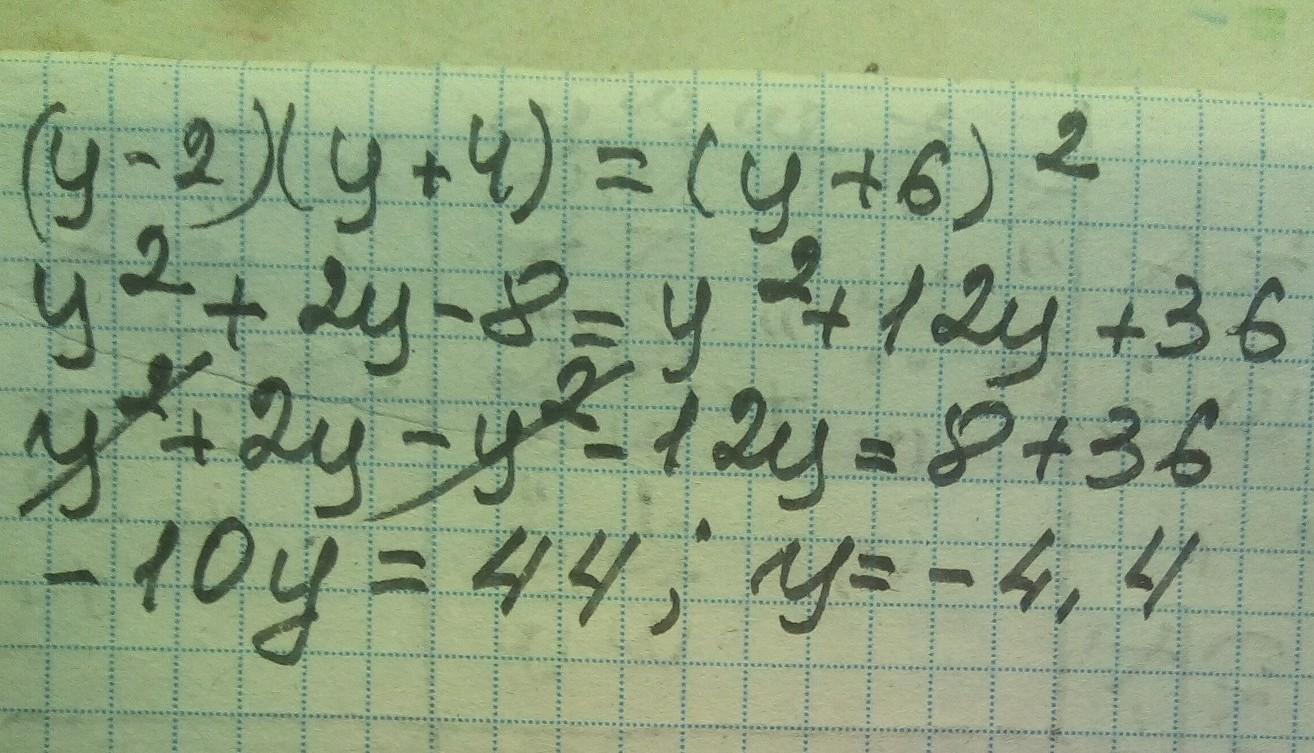 (y-2)(y+4)=(y+6)²
y²+2y-8=y²+12y+36
y²+2y-y²-12y=8+36
-10y=44; y=-4,4